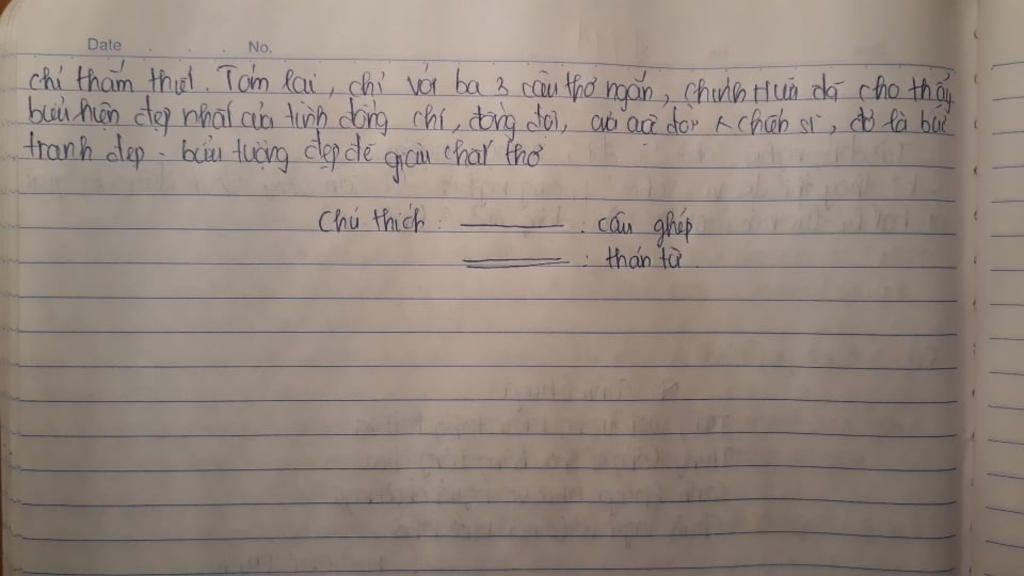 Date . . . No.
chí thắm thiết. Tóm lại, chỉ với ba 3 câu thơ ngắn, Chính Hữu đã cho thấy
biểu hiện đẹp nhất của tình đồng chí, đồng đội, của đời chiến sĩ, đó là bức
tranh đẹp - biểu tượng đẹp đẽ giàu chất thơ
Chú thích : : câu ghép
: thán từ